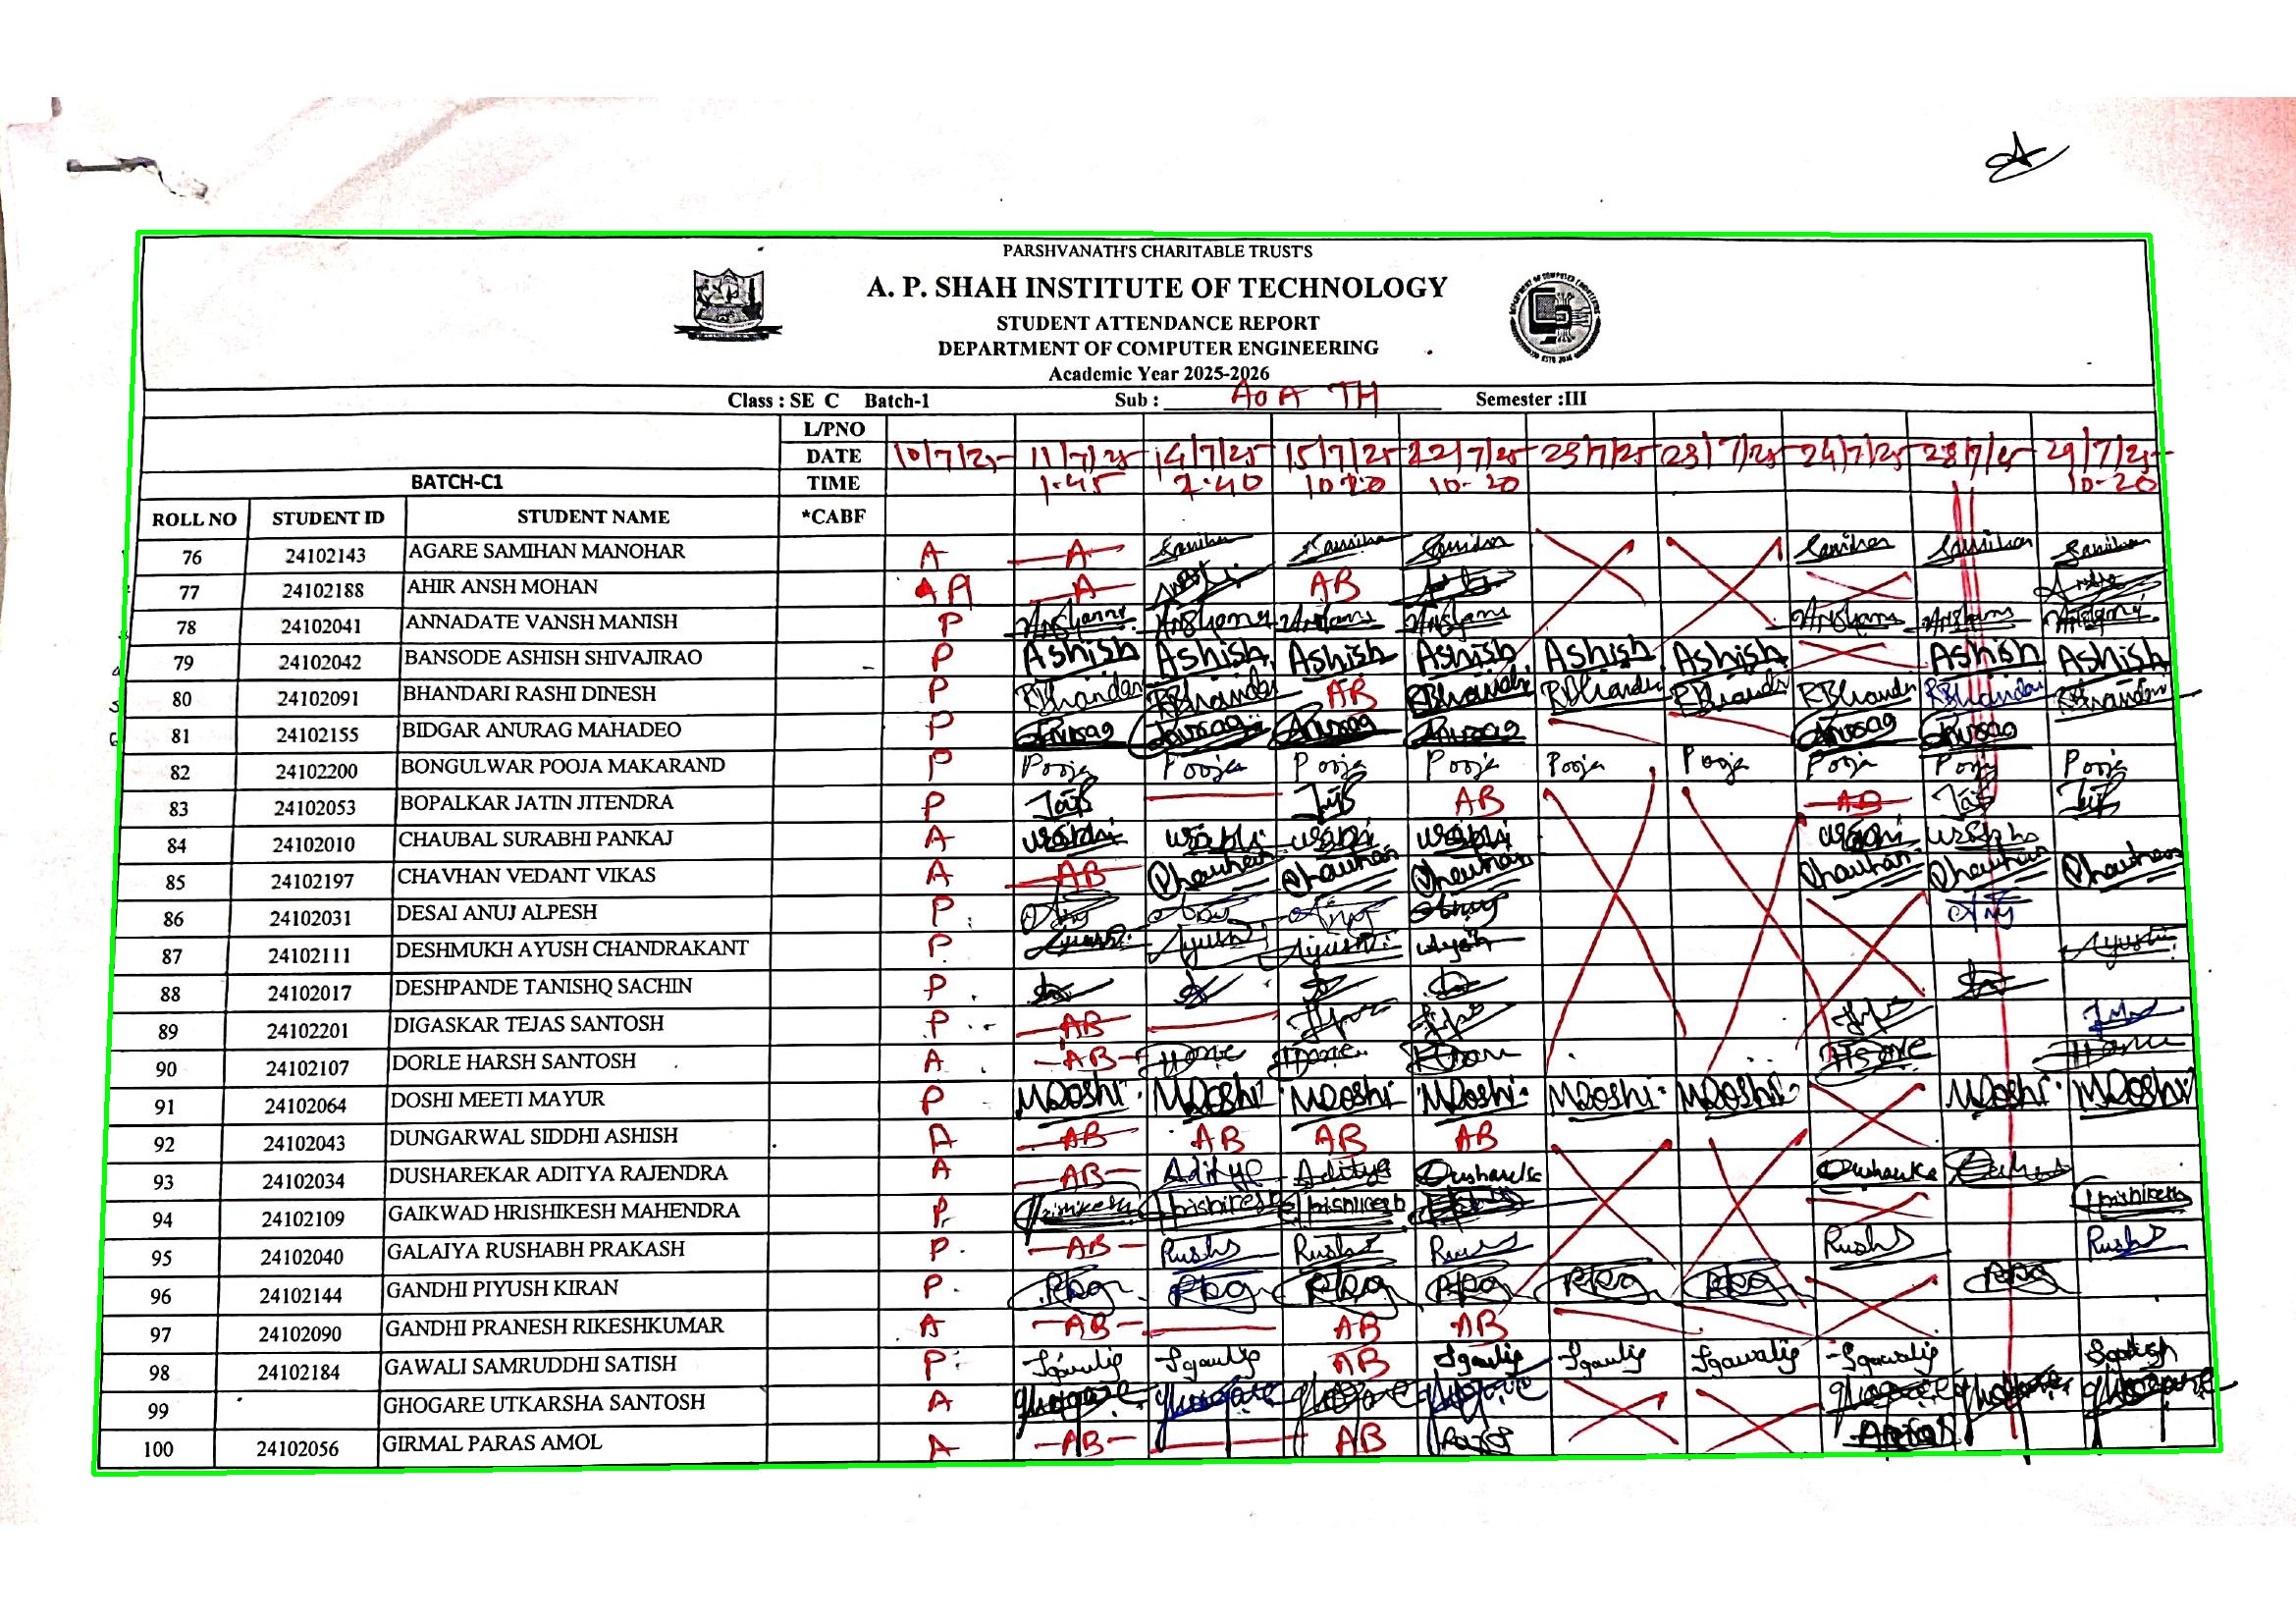 PARSHVANATH'S CHARITABLE TRUST'S
A. P. SHAH INSTITUTE OF TECHNOLOGY
STUDENT ATTENDANCE REPORT
DEPARTMENT OF COMPUTER ENGINEERING
Academic Year 2025-2026
Class : SE C Batch-1 Sub : AOA TH Semester :III
L/PNO
DATE 10/7/25 11/7/25 14/7/25 15/7/25 22/7/25 23/7/25 23/7/25 24/7/25 28/7/25 29/7/25
BATCH-C1 TIME 1.45 2.40 10.20 10-20 10-20
ROLL NO STUDENT ID STUDENT NAME *CABF
76 24102143 AGARE SAMIHAN MANOHAR A A Samihan Samihan Samihan Samihan Samihan Samihan
77 24102188 AHIR ANSH MOHAN A A AB
78 24102041 ANNADATE VANSH MANISH P
79 24102042 BANSODE ASHISH SHIVAJIRAO P Ashish Ashish Ashish Ashish Ashish Ashish Ashish Ashish
80 24102091 BHANDARI RASHI DINESH P RBhandari RBhandari AB RBhandari RBhandari RBhandari RBhandari RBhandari RBhandari
81 24102155 BIDGAR ANURAG MAHADEO P Anurag Anurag Anurag Anurag Anurag Anurag
82 24102200 BONGULWAR POOJA MAKARAND P Pooja Pooja Pooja Pooja Pooja Pooja Pooja Pooja Pooja
83 24102053 BOPALKAR JATIN JITENDRA P AB AB
84 24102010 CHAUBAL SURABHI PANKAJ A
85 24102197 CHAVHAN VEDANT VIKAS A AB Chauhan Chauhan Chauhan Chauhan Chauhan Chauhan
86 24102031 DESAI ANUJ ALPESH P Anuj
87 24102111 DESHMUKH AYUSH CHANDRAKANT P Ayush Ayush Ayush Ayush Ayush
88 24102017 DESHPANDE TANISHQ SACHIN P
89 24102201 DIGASKAR TEJAS SANTOSH P AB
90 24102107 DORLE HARSH SANTOSH A AB
91 24102064 DOSHI MEETI MAYUR P MDoshi MDoshi MDoshi MDoshi MDoshi MDoshi MDoshi MDoshi
92 24102043 DUNGARWAL SIDDHI ASHISH A AB AB AB AB
93 24102034 DUSHAREKAR ADITYA RAJENDRA A AB Aditya Aditya
94 24102109 GAIKWAD HRISHIKESH MAHENDRA P Hrishikesh Hrishikesh Hrishikesh Hrishikesh
95 24102040 GALAIYA RUSHABH PRAKASH P AB Rush Rush Rush Rush
96 24102144 GANDHI PIYUSH KIRAN P PKG PKG PKG PKG PKG PKG PKG
97 24102090 GANDHI PRANESH RIKESHKUMAR A AB AB AB
98 24102184 GAWALI SAMRUDDHI SATISH P Sgawali Sgawali AB Sgawali Sgawali Sgawali Sgawali
99 GHOGARE UTKARSHA SANTOSH A Ghogare Ghogare Ghogare Ghogare Ghogare Ghogare Ghogare
100 24102056 GIRMAL PARAS AMOL A AB AB